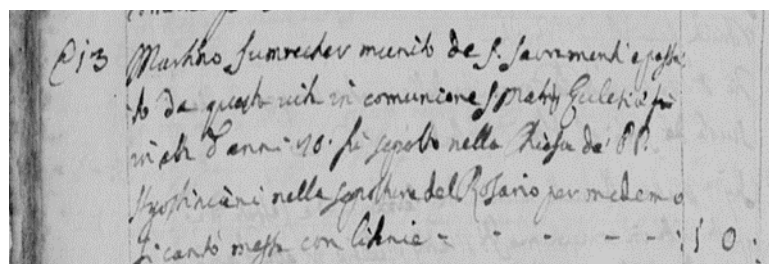 @ 13 Martino Sumrecher munito de S. Sacramenti e passa
to da questa vita in comunione S. Matris Eccleria fù
in età d'anni 70. fù sepolto nella Chiesa de' PP.
Agostiniani nella sepoltura del Rosario per medemo
si cantò messa con litanie - - - - - : 1 0 :